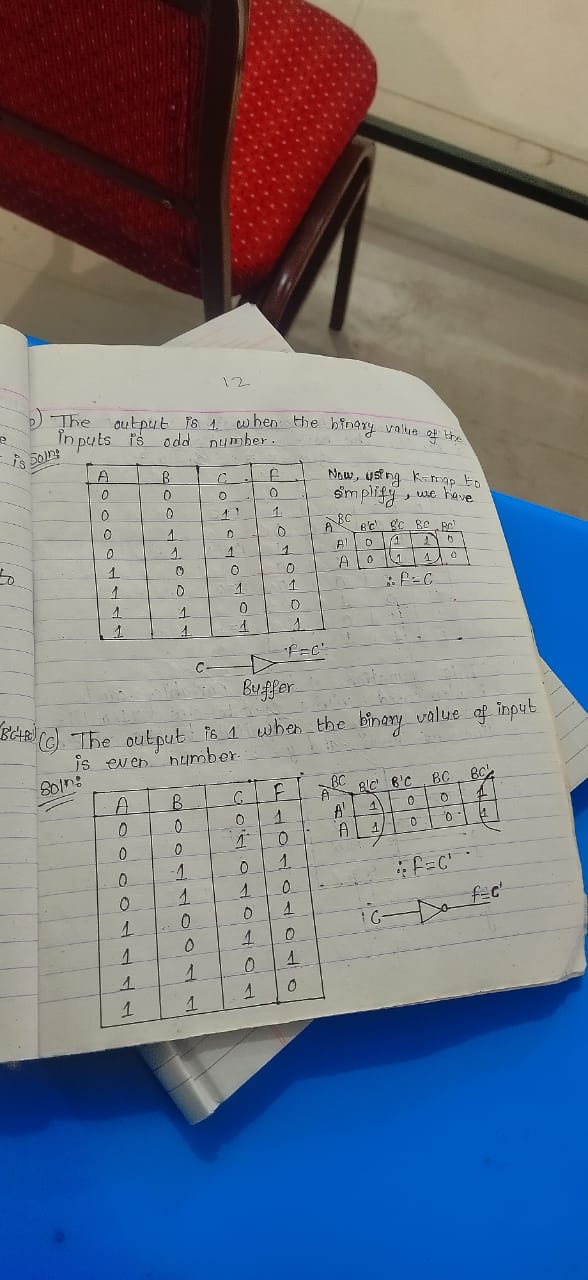 12
b) The output is 1 when the binary value of the
inputs is odd number.
e
is
Soln:
A B C F
0 0 0 0
0 0 1 1
0 1 0 0
0 1 1 1
1 0 0 0
1 0 1 1
1 1 0 0
1 1 1 1
Now, using K-map to
simplify, we have
A BC B'C' B'C BC BC'
A' 0 1 1 0
A 0 1 1 0
∴ F=C
to
C F=C'
Buffer
(c) The output is 1 when the binary value of input
is even number.
Soln:
A B C F
0 0 0 1
0 0 1 0
0 1 0 1
0 1 1 0
1 0 0 1
1 0 1 0
1 1 0 1
1 1 1 0
A BC B'C' B'C BC BC'
A' 1 0 0 1
A 1 0 0 1
∴ F=C'
C F=C'